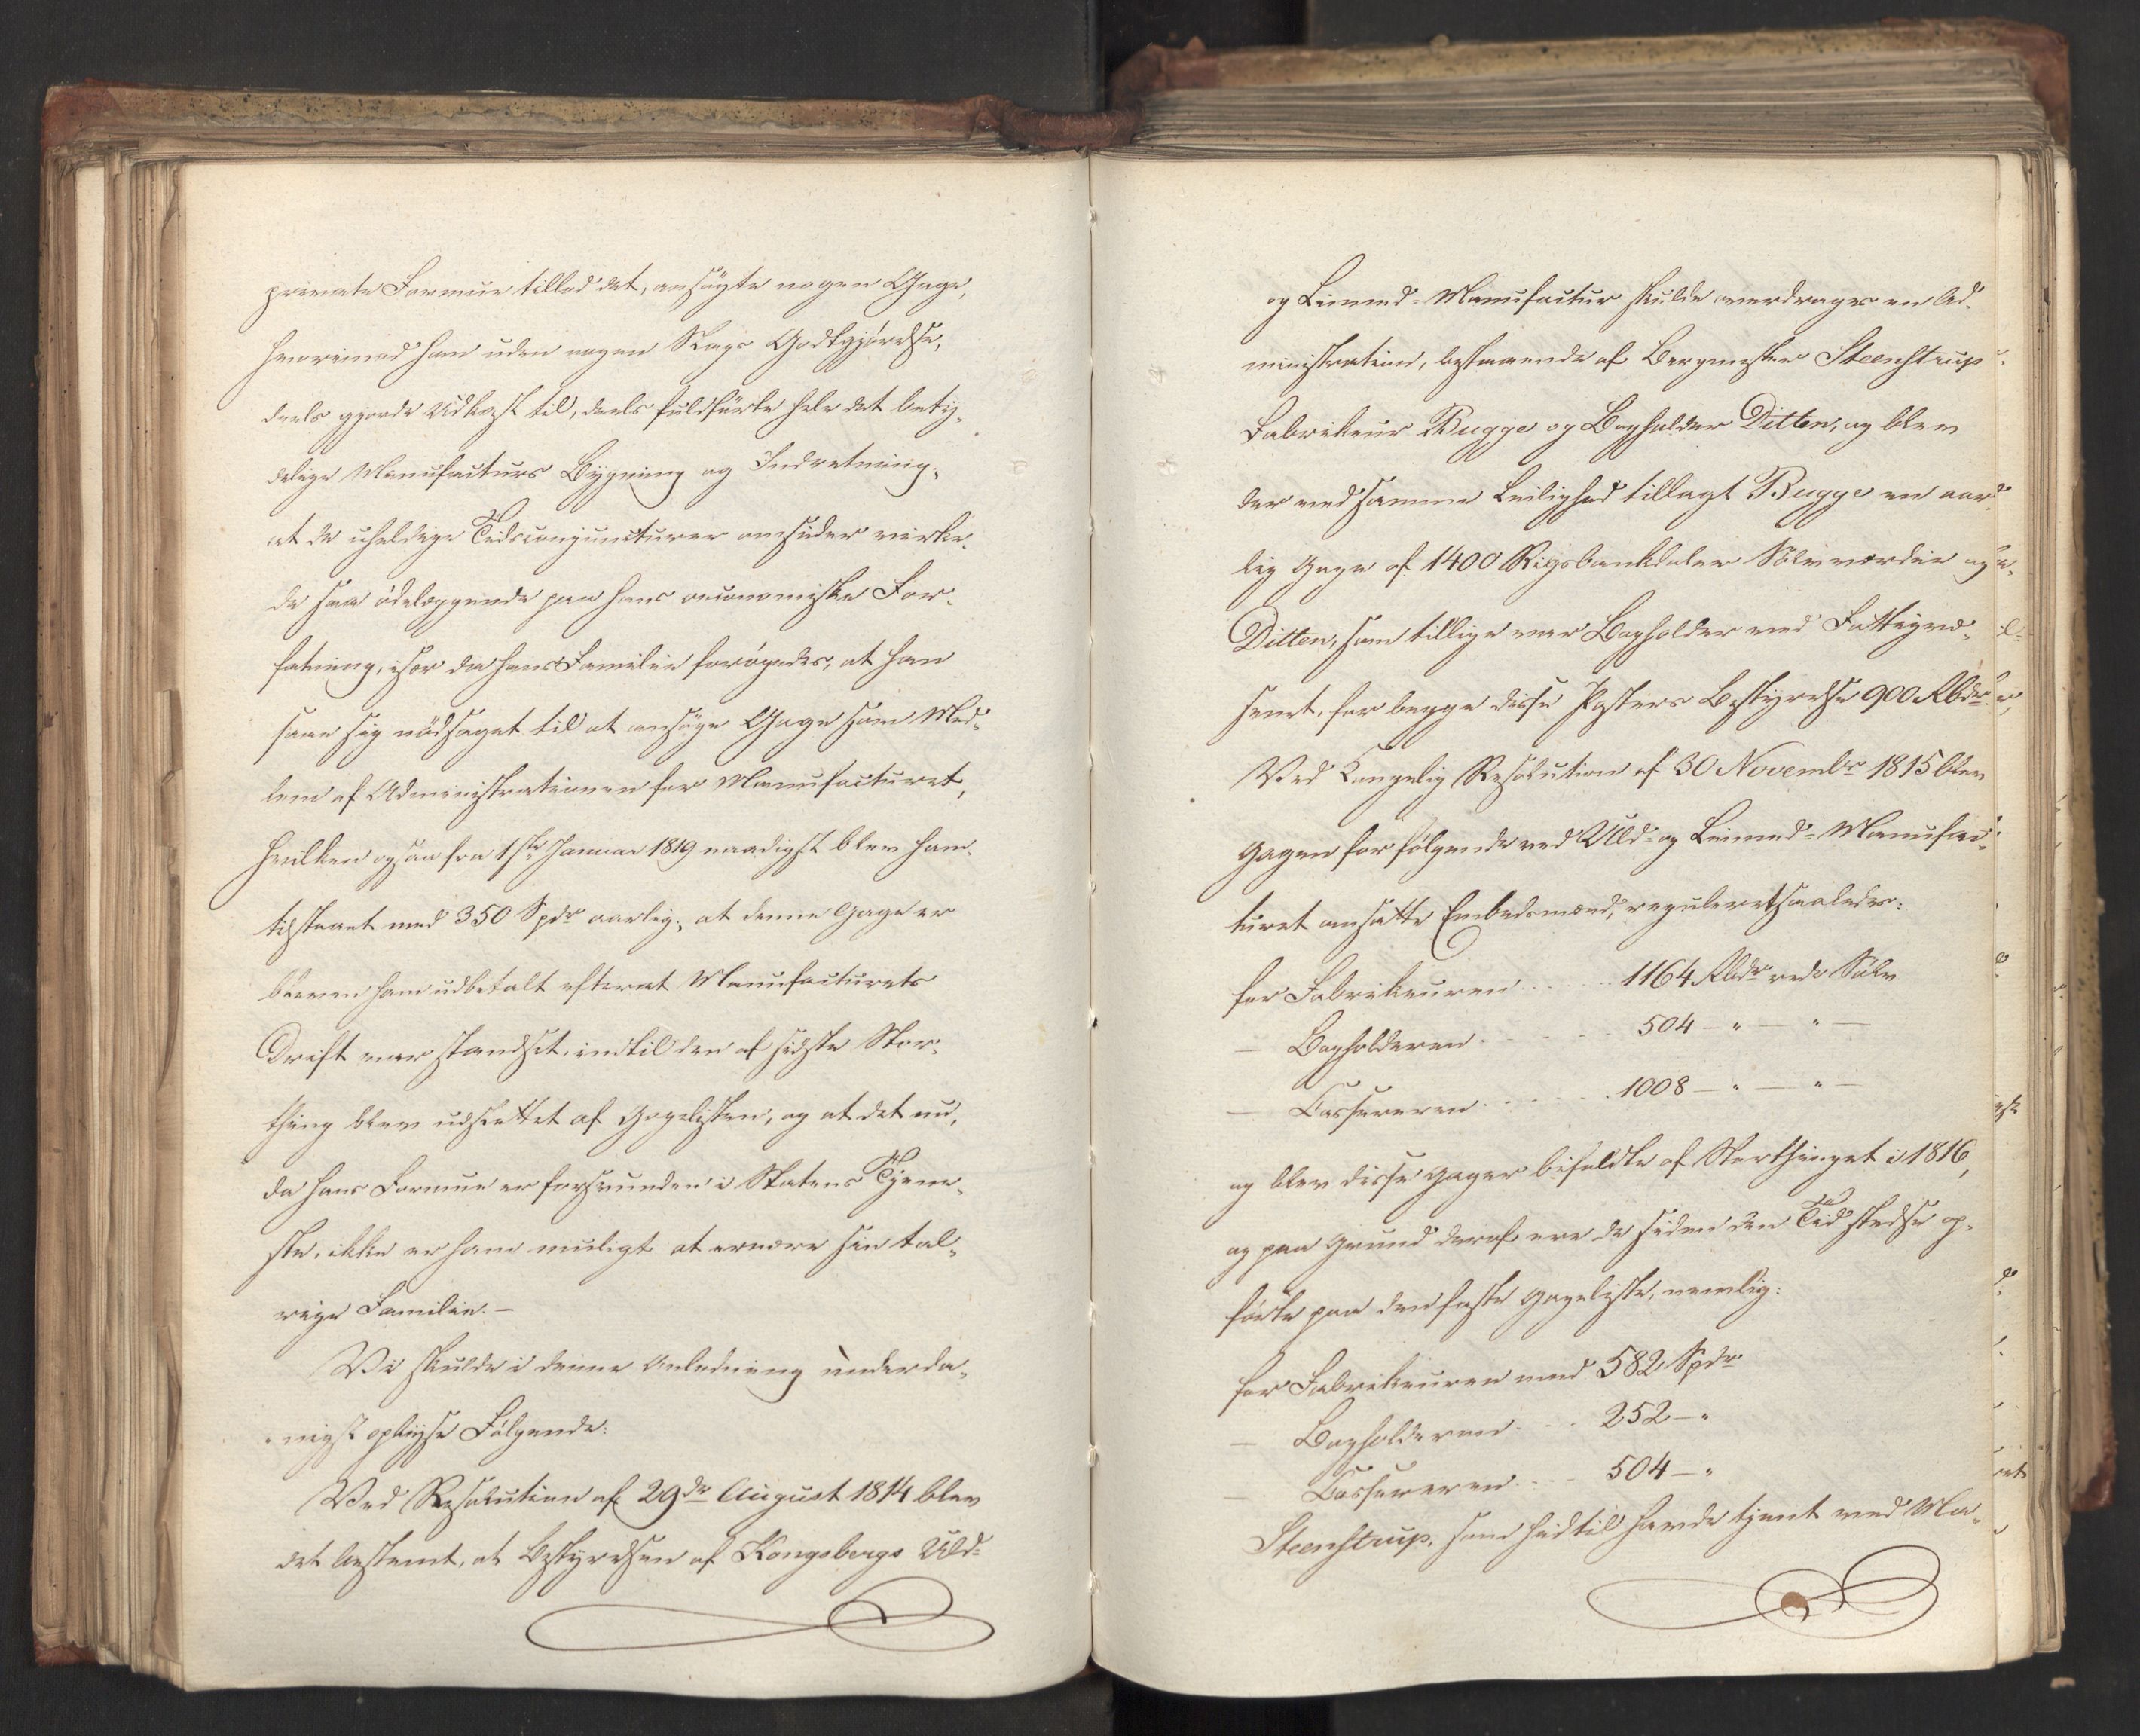 private Formue tillod det, ansøgte nogen Gage,
hvorimod han uden nogen Slags Godtgjørelse,
deels gjorde Udkast til, deels fuldførte hele det bety-
delige Manufacturs Bygning og Indretning,
at de uheldige Tidsconjuncturer omsider virke-
de saa ödelæggende paa hans oeconomiske For-
fatning, især da hans Familie forøgedes, at han
saae sig nödsaget til at ansøge Gage som Med-
lem af Administrationen for Manufacturet,
hvilken ogsaa fra 1ste Januar 1819 naadigst blev ham
tilstaaet med 350 Spdr aarlig, at denne Gage er
bleven ham udbetalt efterat Manufacturets
Drift var standset, indtil den af sidste Stor-
thing blev udslettet af Gagelisten, og at det nu,
da hans Formue er forsvunden i Statens Tjene-
ste, ikke er ham muligt at ernære sin tal-
rige Familie. —
Vi skulde i denne Anledning underda-
nigst oplyse Følgende:
Ved Resolution af 29de August 1814 blev
det bestemt, at Bestyrelsen af Kongsbergs Uld-
og Linned-Manufactur skulde overdrages en Ad-
ministration, bestaaende af Bergmester Steenstrup
Fabrikeur Bugge og Bogholder Ditten, og blev
der ved samme Leilighed tillagt Bugge en aar-
lig Gage af 1400 Rigsbankdaler Sölvværdie og
Ditten, som tillige var Bogholder ved Fattigvæ-
senet, for begge disse Posters Bestyrelse 900 Rbdr.
Ved Kongelig Resolution af 30 Novembr 1815 blev
Gagen for følgende ved Uld- og Linned-Manufac-
turet ansatte Embedsmænd, reguleret saaledes:
for Fabrikeuren . . . . . 1164 Rbdr rede Sölv
— Bogholderen . . . . . 504 — " — " —
— Cassereren . . . . . . 1008 — " — " —
og blev disse Gager bifaldte af Storthinget i 1816,
og paa Grund deraf ere de siden den Tid stedse op-
førte paa den faste Gageliste, nemlig:
for Fabrikeuren med 582 Spdr
— Bogholderen . . . 252 — "
— Cassereren . . . 504 — "
Steenstrup, som hidtil havde tjent ved Ma-